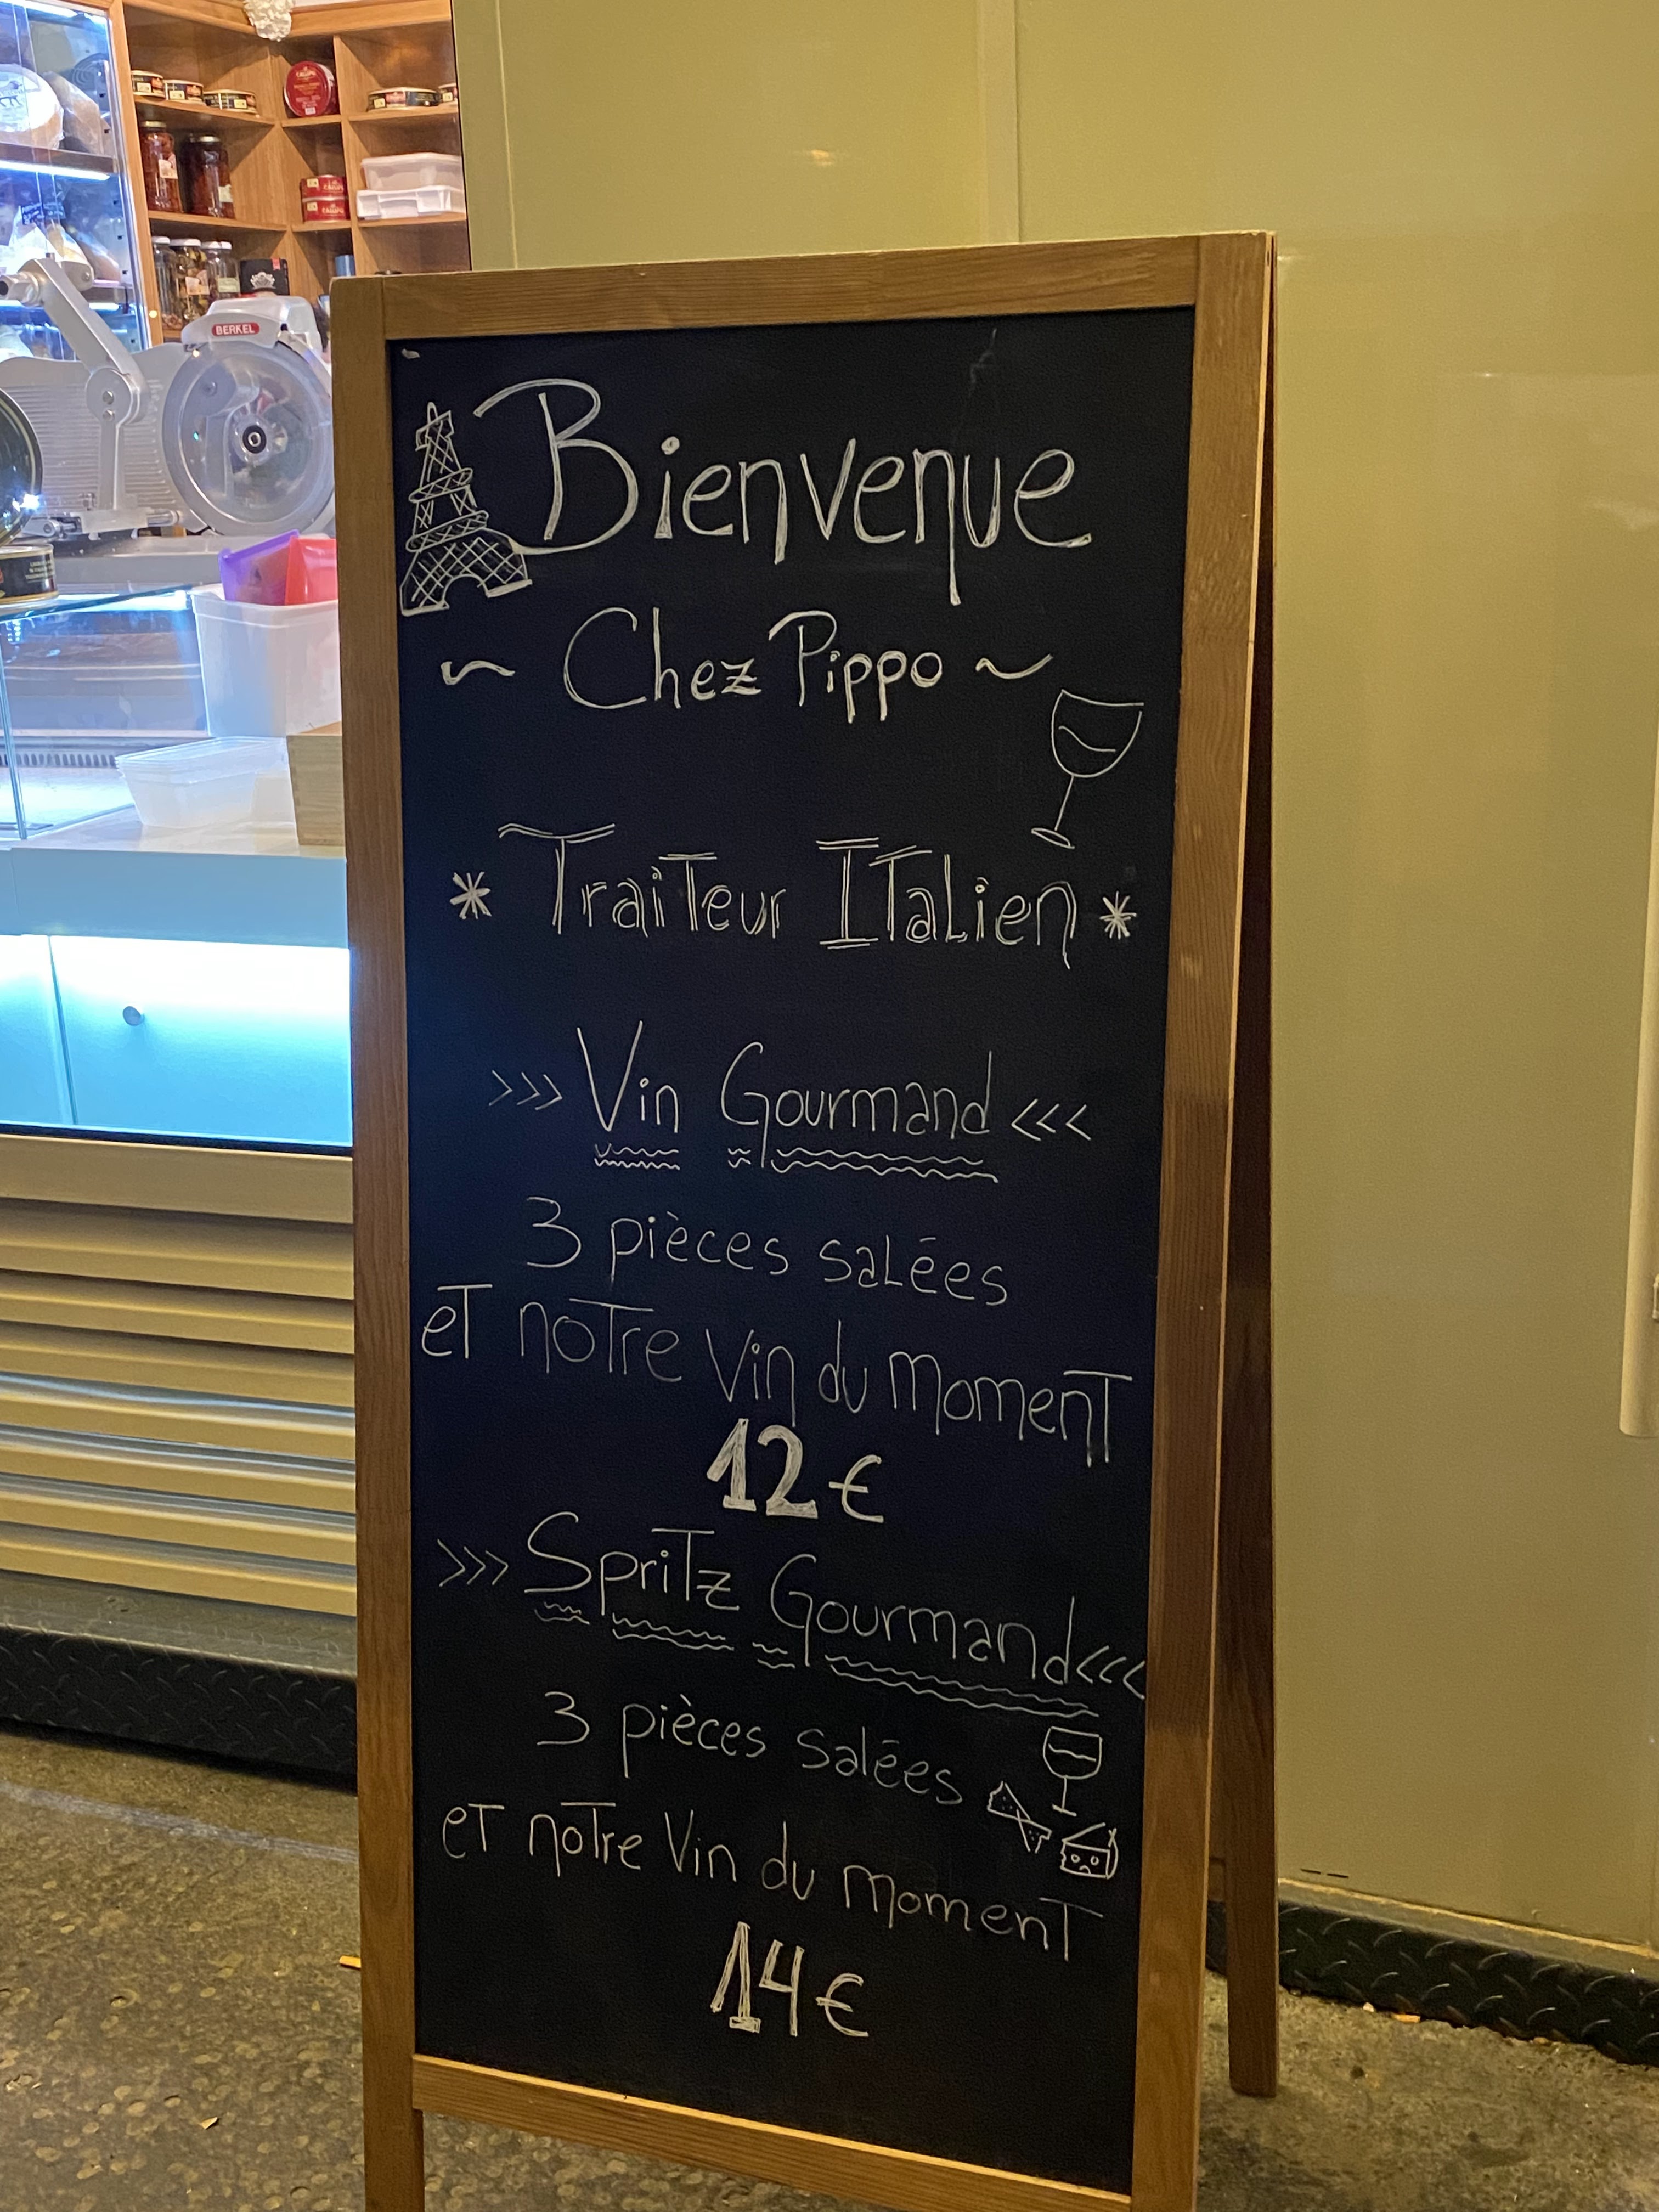 BERKEL
Bienvenue
~ Chez Pippo ~
* Traiteur Italien *
>>> Vin Gourmand <<<
3 pièces salées
et notre Vin du moment
12€
>>> Spritz Gourmand <<<
3 pièces salées
et notre Vin du moment
14€